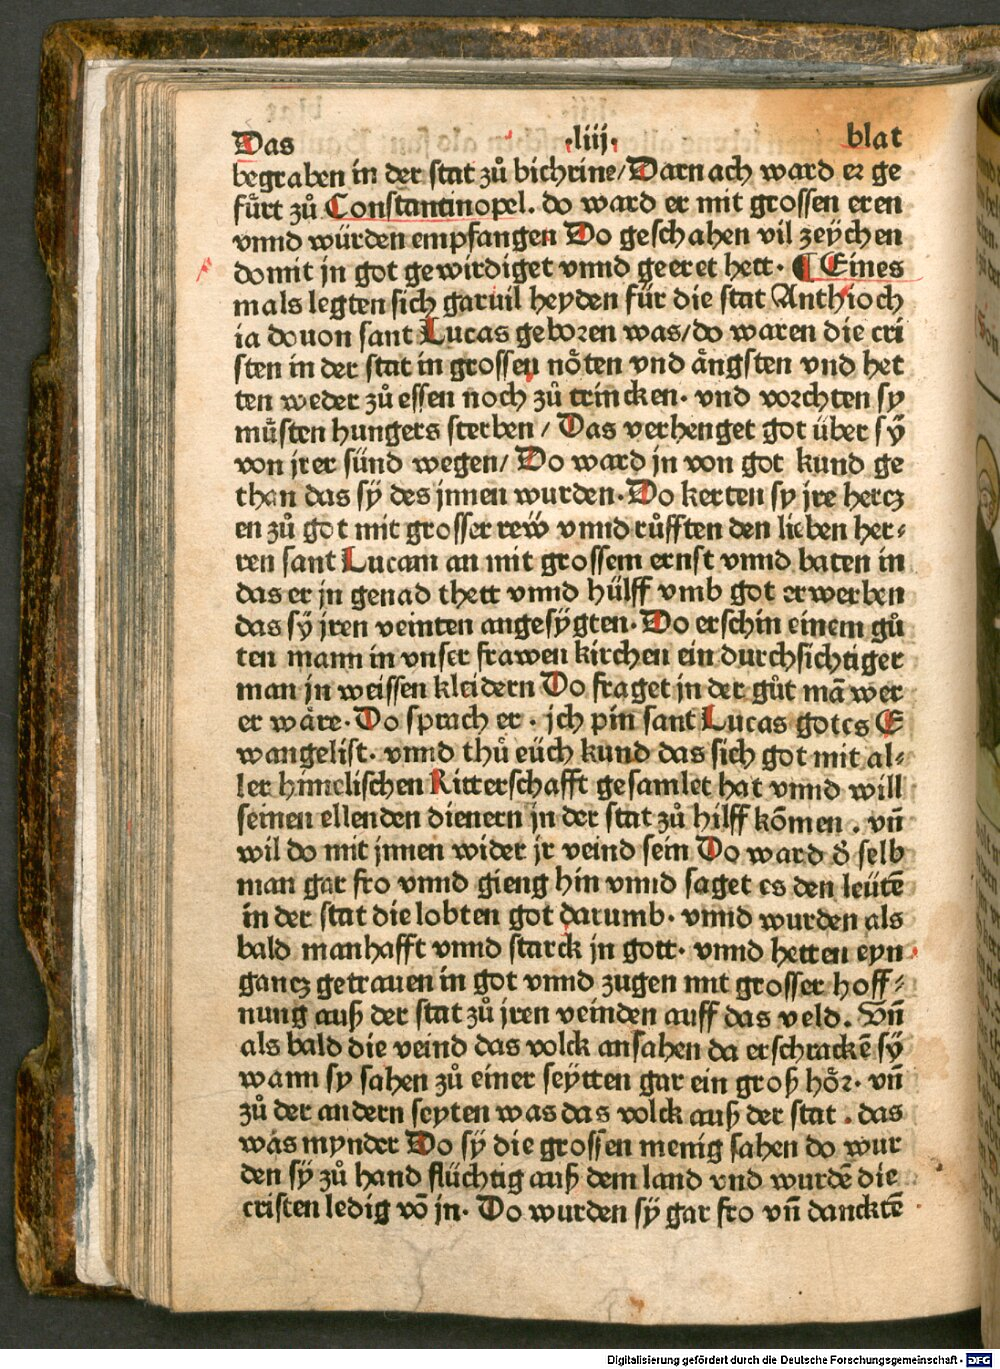 Das .liij. blat
begraben in der stat zů bichrine/ Darnach ward er ge
fürt zů Constantinopel. do ward er mit grossen eren
vnnd würden empfangen Do geschahen vil zeÿchen
domit jn got gewirdiget vnnd geeret hett. ¶ Eines
mals legten sich garuil heyden für die stat Anthioch
ia douon sant Lucas geboren was/ do waren die cri
sten in der stat in grossen nöten vnd ängsten vnd het
ten weder zů essen noch zů trincken. vnd vorchten sy
müsten hungers sterben/ Das verhenget got über sÿ
von jrer sünd wegen/ Do ward jn von got kund ge
than das sÿ des jnnen wurden. Do kerten sy jre hercz
en zů got mit grosser rew̎ vnnd růfften den lieben her-
ren sant Lucam an mit grossem ernst vnnd baten in
das er jn genad thett vnnd hülff vmb got erwerben
das sÿ jren veinten angesÿgten. Do erschin einem gů
ten mann in vnser frawen kirchen ein durchsichtiger
man jn weissen kleidern Do fraget jn der gůt mā wer
er wäre. Do sprach er. jch pin sant Lucas gotes E
wangelist. vnnd thů eüch kund das sich got mit al-
ler himelischen Ritterschafft gesamlet hat vnnd will
seinen ellenden dienern jn der stat zů hilff kōmen. vñ
wil do mit jnnen wider jr veind sein Do ward d̄ selb
man gar fro vnnd gieng hin vnnd saget es den leütē
in der stat die lobten got darumb. vnnd wurden als
bald manhafft vnnd starck jn gott. vnnd hetten eyn
gancz getrauen in got vnnd zugen mit grosser hoff-
nung auß der stat zů jren veinden auff das veld. Vñ
als bald die veind das volck ansahen da erschrackē sÿ
wann sy sahen zů einer seÿtten gar ein groß hör. vñ
zů der andern seyten was das volck auß der stat. das
was mynder Do sÿ die grossen menig sahen do wur
den sÿ zů hand flüchtig auß dem land vnd wurdē die
cristen ledig vō jn. Do wurden sÿ gar fro vñ dancktē
Digitalisierung gefördert durch die Deutsche Forschungsgemeinschaft - DFG